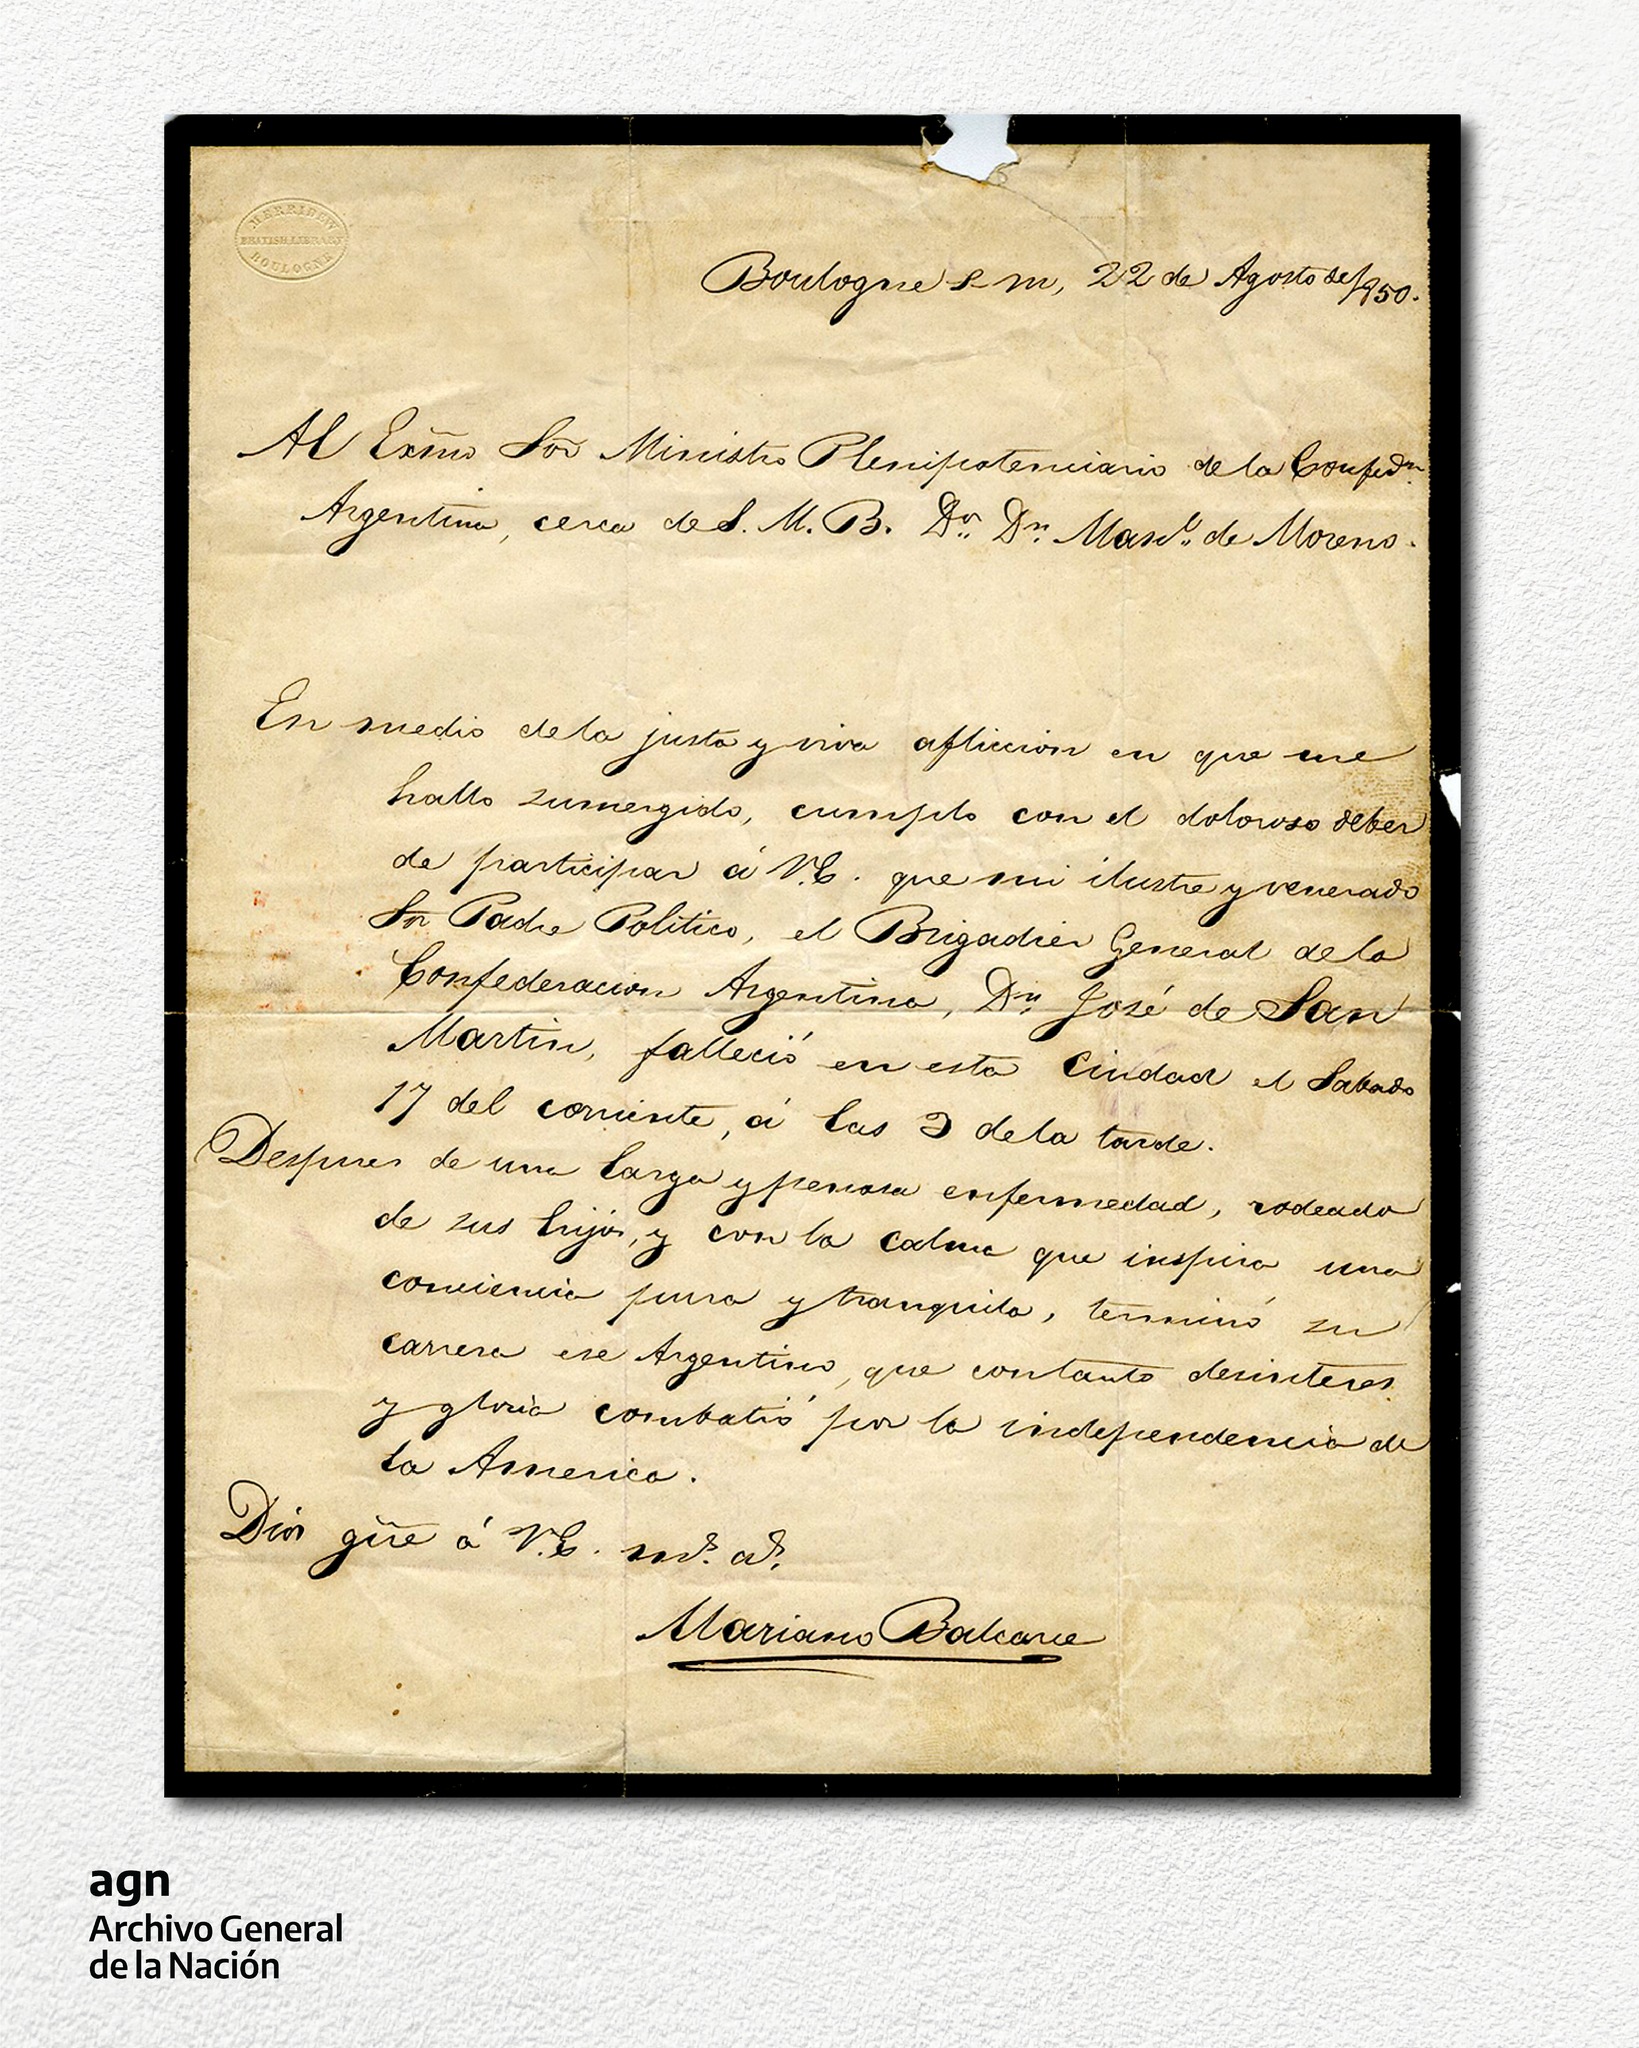 MERRIDEW
BRITISH LIBRARY
BOULOGNE
Boulogne s m, 22 de Agosto de 1850.
Al Exmõ Sor̃ Ministro Plenipotenciario de la Confedn.
Argentina, cerca de S. M. B. Dr. Dn. Manl. de Moreno.
En medio de la justa y viva afliccion en que me
hallo zumergido, cumplo con el doloroso deber
de participar á V.E. que mi ilustre y venerado
Sr Padre Politico, el Brigadier General de la
Confederacion Argentina, Dn. José de San
Martin, falleció en esta Ciudad el Sabado
17 del corriente, á las 3 de la tarde.
Despues de una larga y penosa enfermedad, rodeado
de sus hijos, y con la calma que inspira una
conciencia pura y tranquila, terminó su
carrera ese Argentino, que con tanto desinteres
y gloria combatió por la independencia de
la America.
Dios güe á V.E. ms. as.
Mariano Balcarce
agn
Archivo General
de la Nación